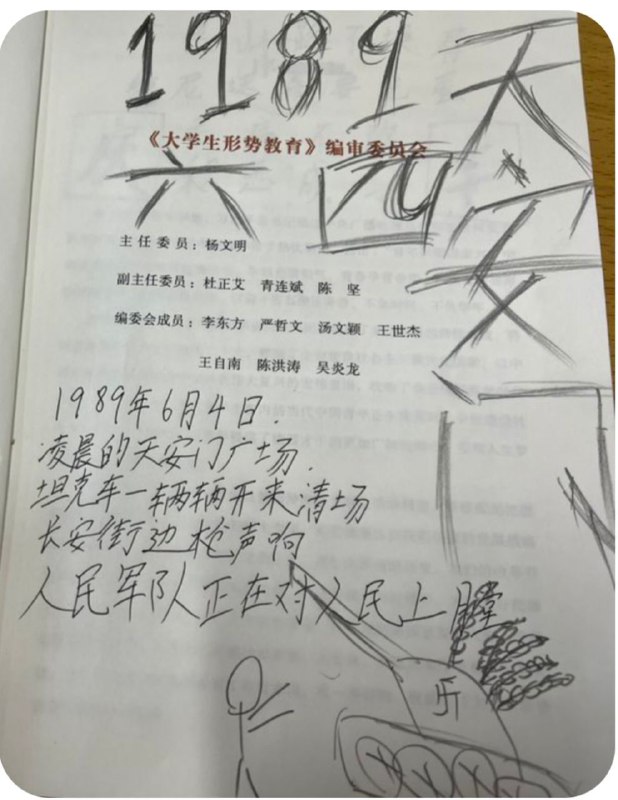 1989
六四
天安门
《大学生形势教育》编审委员会
主 任 委 员：杨文明
副主任委员：杜正艾 青连斌 陈 坚
编委会成员：李东方 严哲文 汤文颖 王世杰
王自南 陈洪涛 吴炎龙
1989年6月4日.
凌晨的天安门广场.
坦克车一辆辆开来清场
长安街边枪声响
人民军队正在对人民上膛